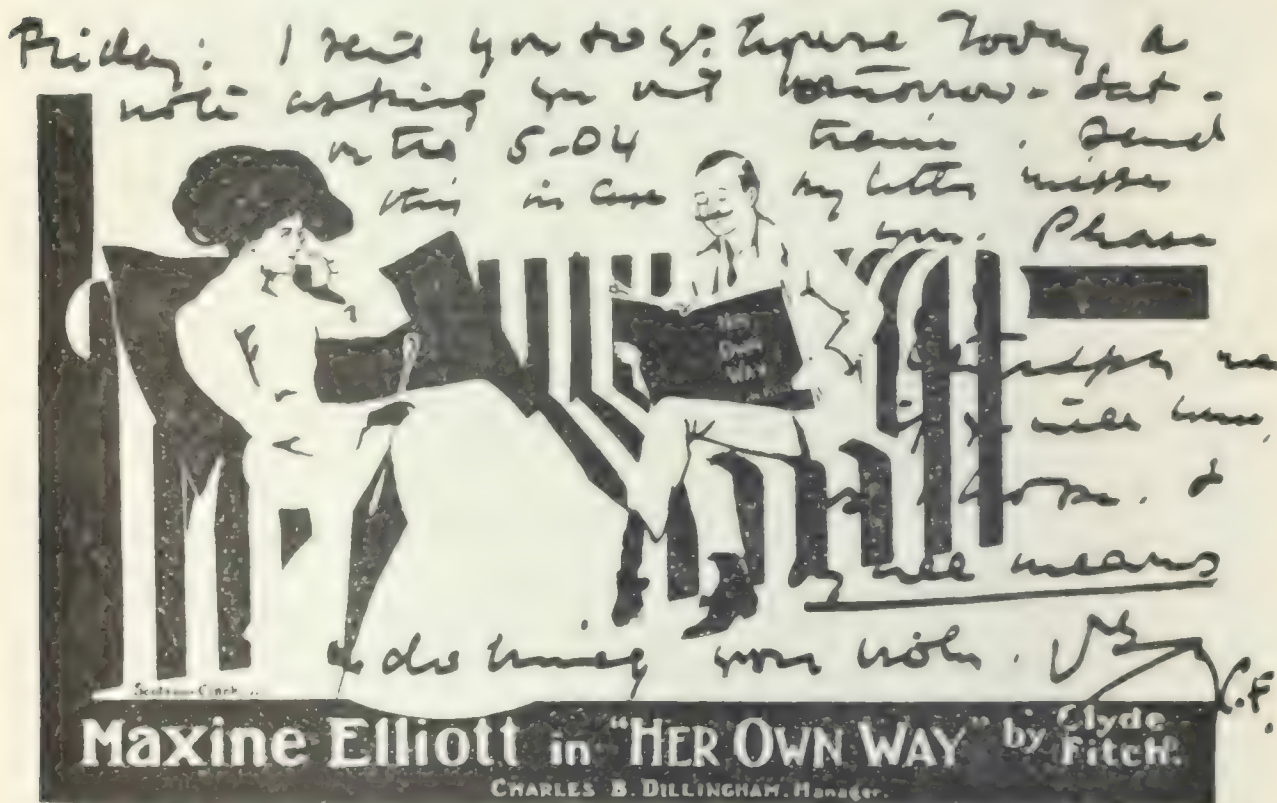 Friday: I sent you to Square Today a
note asking you out tomorrow - Sat -
on the 5-04 train. Send
this in case my letter misses
you. Please
me
will have
I hope. &
by all means
do bring your
C.F.
HER
OWN
WAY
Maxine Elliott in "HER OWN WAY" by Clyde Fitch.
CHARLES B. DILLINGHAM. Manager.